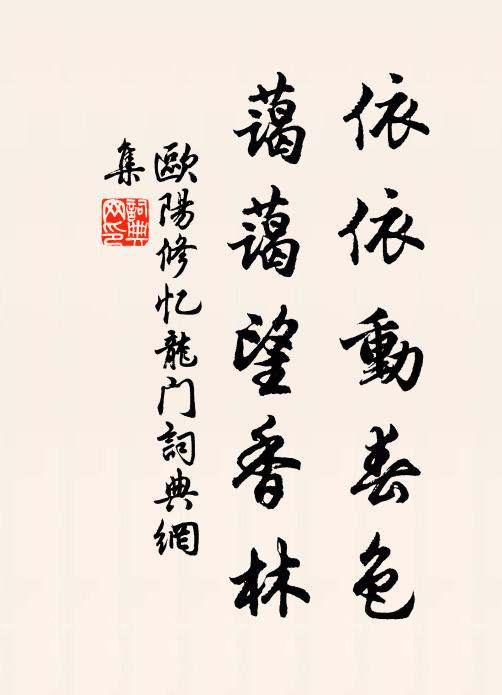 依依動春色
藹藹望香林
歐陽修忆龍门詞典網
集
詞典
网印